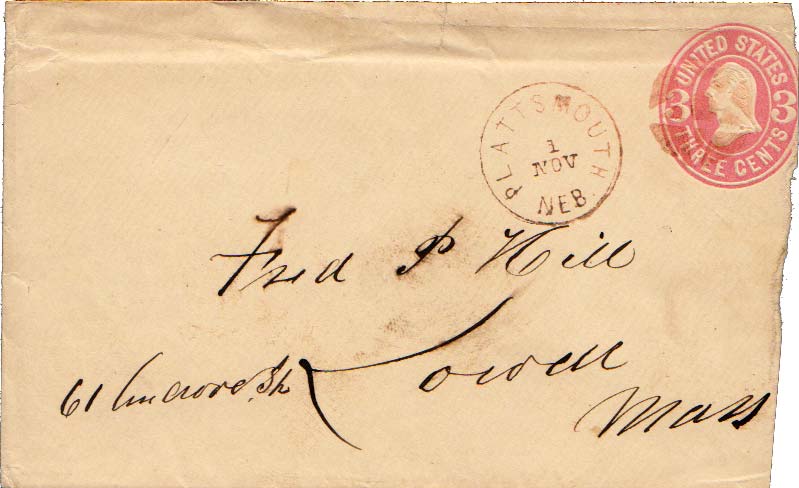 UNITED STATES
3 3
THREE CENTS
PLATTSMOUTH
1
NOV
NEB.
Fred P Hill
61
Lowell
Mass